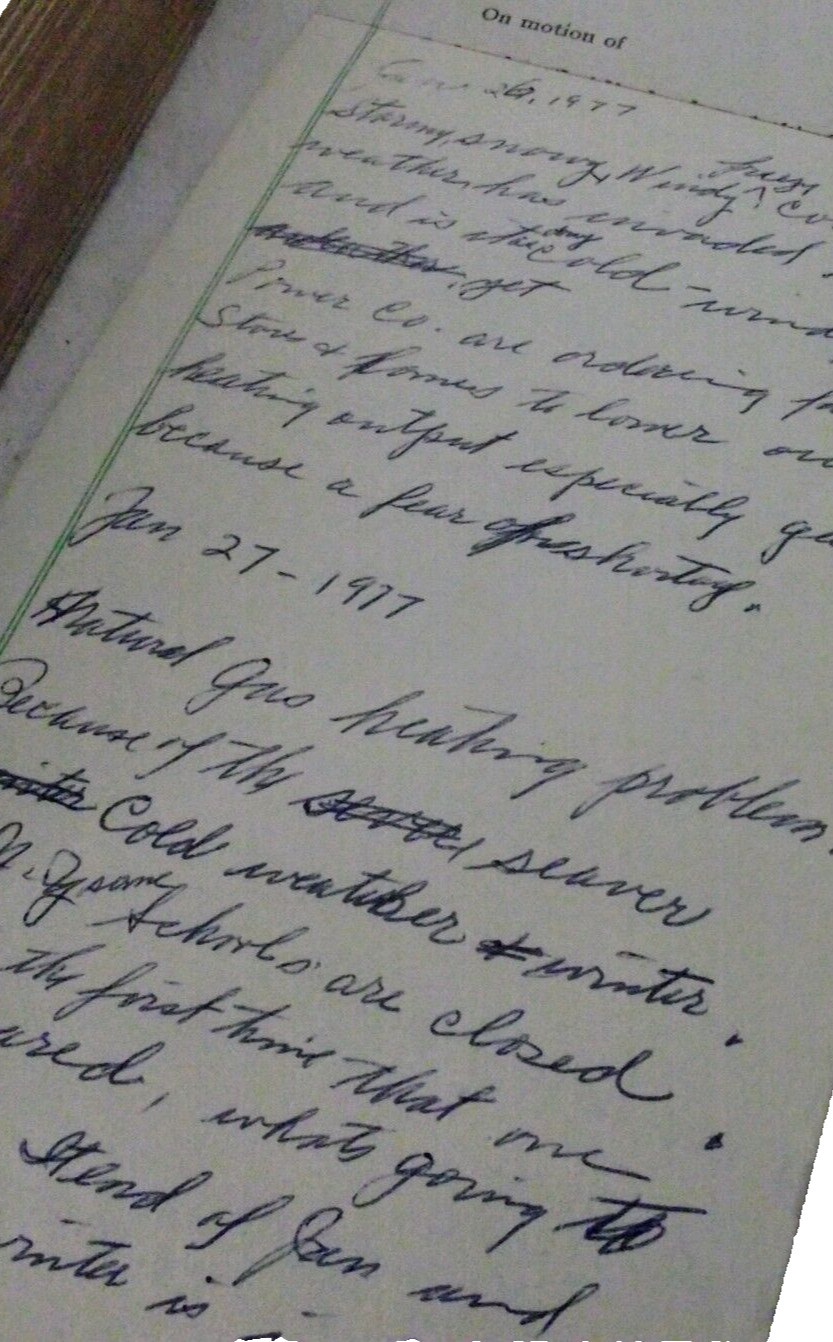 On motion of
Jan 26, 1977
stormy, snowy, Windy ^
weather, has invaded
and is still cold-wind
yet
Power Co. are ordering
Store & Homes to lower our
heating output especially ga
because a fear of
Jan 27-1977
Natural Gas heating problem.
Because of the seaver
Cold weather winter.
N.Y some Schools are closed.
the first time that one
ared, whats going to
end of Jan and
inter is